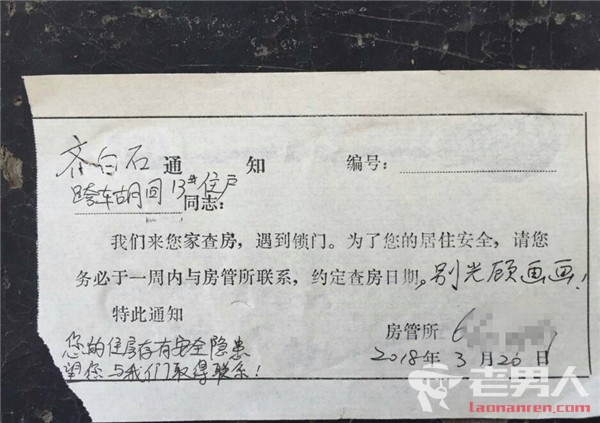 齐白石 通 知 编号:
跨车胡同13#住户
同志:
我们来您家查房，遇到锁门。为了您的居住安全，请您
务必于一周内与房管所联系，约定查房日期。别光顾画画!
特此通知
房管所 6
您的住房存有安全隐患 2018年3月20日
望您与我们取得联系!
老男人
laonanren.com